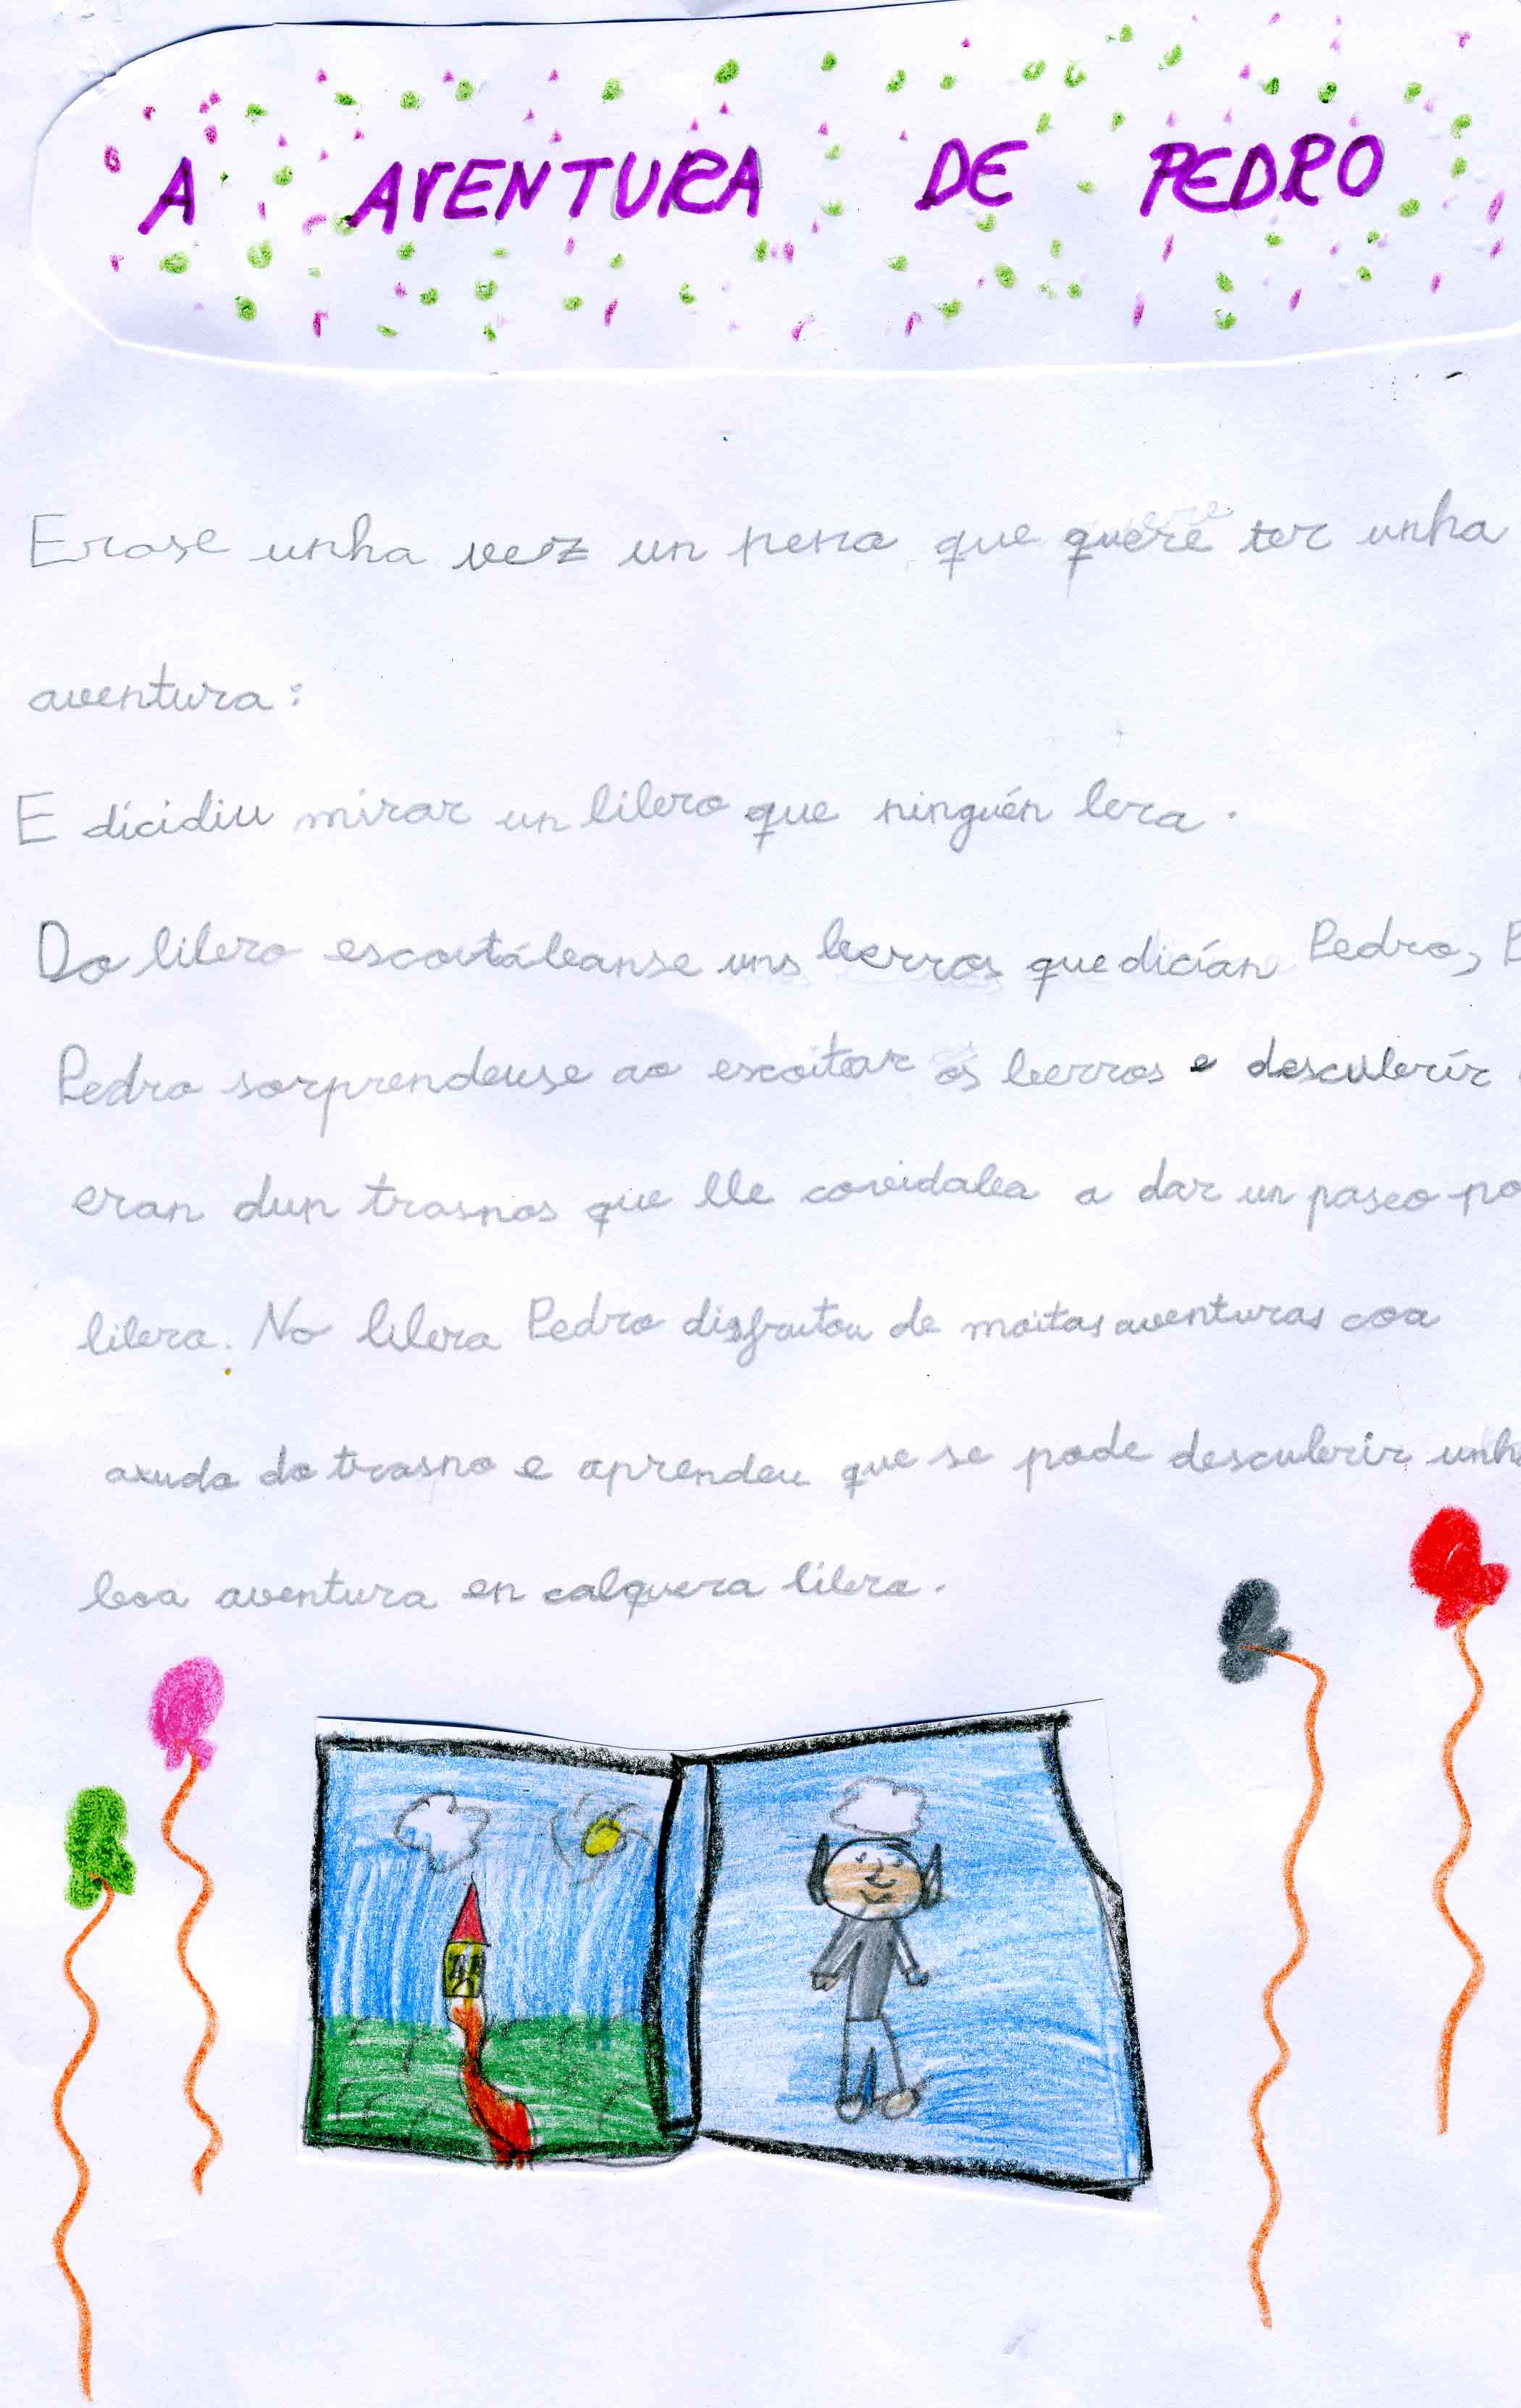 A AVENTURA DE PEDRO
Erase unha vez un neno que quere ter unha
aventura:
E dicidiu mirar un libro que ninguén lera.
Do libro escoitábanse uns berros que dicían Pedro, P
Pedro sorprendeuse ao escoitar os berros e descubrir
eran dun trasnos que lle covidaba a dar un paseo po
libro. No libro Pedro disfrutou de moitas aventuras coa
axuda do trasno e aprendeu que se pode descubrir unha
boa aventura en calquera libro.